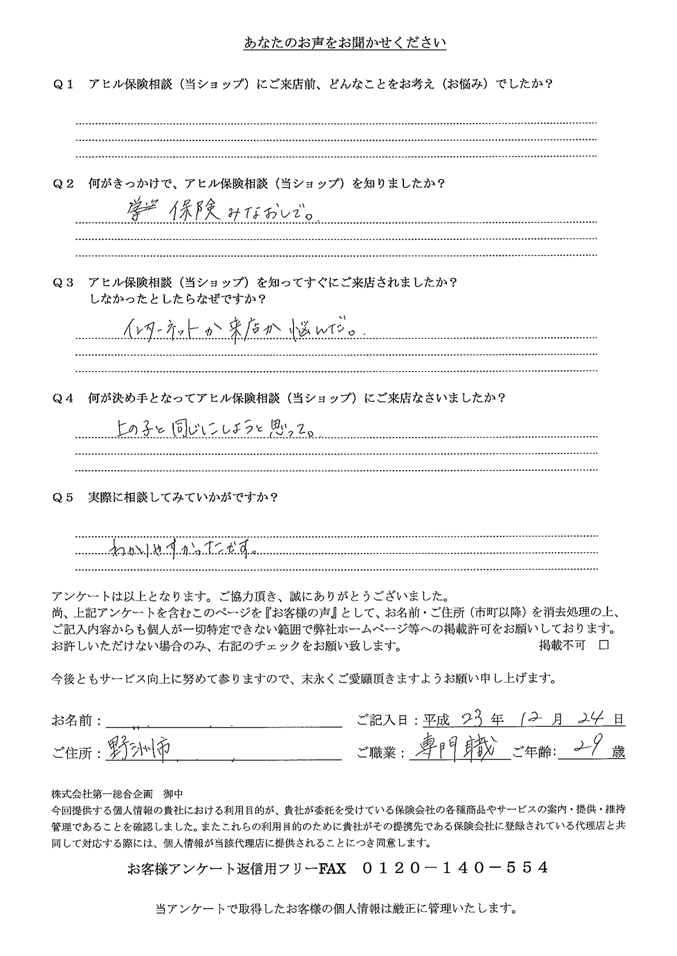 あなたのお声をお聞かせください
Q1 アヒル保険相談(当ショップ)にご来店前、どんなことをお考え(お悩み)でしたか?
Q2 何がきっかけで、アヒル保険相談(当ショップ)を知りましたか?
保険みなおしで。
Q3 アヒル保険相談(当ショップ)を知ってすぐにご来店されましたか?
しなかったとしたらなぜですか?
インターネットか来店か悩んだ。
Q4 何が決め手となってアヒル保険相談(当ショップ)にご来店なさいましたか?
上の子と同じにしようと思って。
Q5 実際に相談してみていかがですか?
わかりやすかったです。
アンケートは以上となります。ご協力頂き、誠にありがとうございました。
尚、上記アンケートを含むこのページを『お客様の声』として、お名前・ご住所(市町以降)を消去処理の上、
ご記入内容からも個人が一切特定できない範囲で弊社ホームページ等への掲載許可をお願いしております。
お許しいただけない場合のみ、右記のチェックをお願い致します。 掲載不可 □
今後ともサービス向上に努めて参りますので、末永くご愛顧頂きますようお願い申し上げます。
お名前: ご記入日:平成 23 年 12 月 24 日
ご住所:野洲市 ご職業:専門職 ご年齢:29 歳
株式会社第一総合企画 御中
今回提供する個人情報の貴社における利用目的が、貴社が委託を受けている保険会社の各種商品やサービスの案内・提供・維持
管理であることを確認しました。またこれらの利用目的のために貴社がその提携先である保険会社に登録されている代理店と共
同して対応する際には、個人情報が当該代理店に提供されることにつき同意します。
お客様アンケート返信用フリーFAX 0120-140-554
当アンケートで取得したお客様の個人情報は厳正に管理いたします。